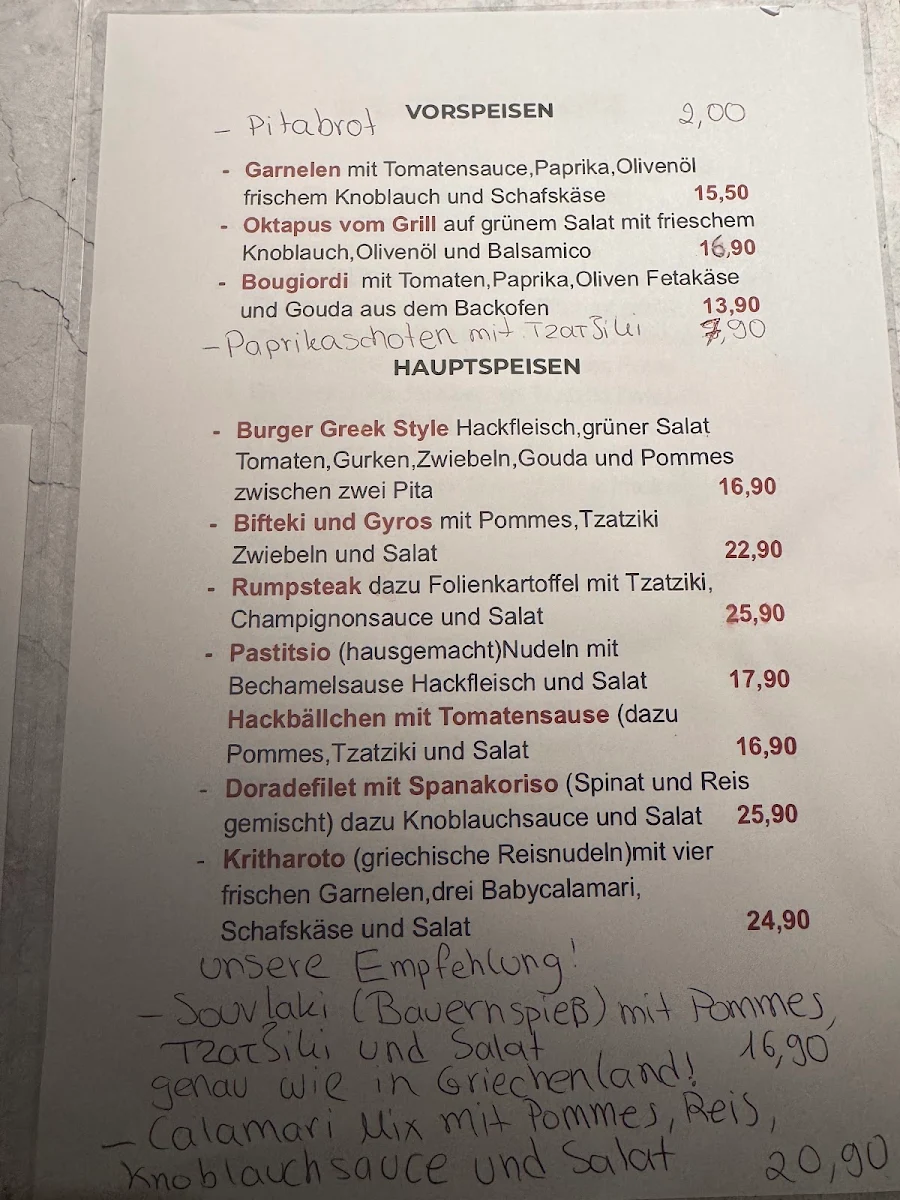 VORSPEISEN
- Pitabrot 2,00
- Garnelen mit Tomatensauce,Paprika,Olivenöl
frischem Knoblauch und Schafskäse 15,50
- Oktapus vom Grill auf grünem Salat mit frieschem
Knoblauch,Olivenöl und Balsamico 16,90
- Bougiordi mit Tomaten,Paprika,Oliven Fetakäse
und Gouda aus dem Backofen 13,90
- Paprikaschoten mit Tzatsiki 7,90
HAUPTSPEISEN
- Burger Greek Style Hackfleisch,grüner Salat
Tomaten,Gurken,Zwiebeln,Gouda und Pommes
zwischen zwei Pita 16,90
- Bifteki und Gyros mit Pommes,Tzatziki
Zwiebeln und Salat 22,90
- Rumpsteak dazu Folienkartoffel mit Tzatziki,
Champignonsauce und Salat 25,90
- Pastitsio (hausgemacht)Nudeln mit
Bechamelsause Hackfleisch und Salat 17,90
Hackbällchen mit Tomatensause (dazu
Pommes,Tzatziki und Salat 16,90
- Doradefilet mit Spanakoriso (Spinat und Reis
gemischt) dazu Knoblauchsauce und Salat 25,90
- Kritharoto (griechische Reisnudeln)mit vier
frischen Garnelen,drei Babycalamari,
Schafskäse und Salat 24,90
unsere Empfehlung!
- Souvlaki (Bauernspieß) mit Pommes,
Tzatsiki und Salat 16,90
genau wie in Griechenland!
- Calamari Mix mit Pommes, Reis,
Knoblauchsauce und Salat 20,90